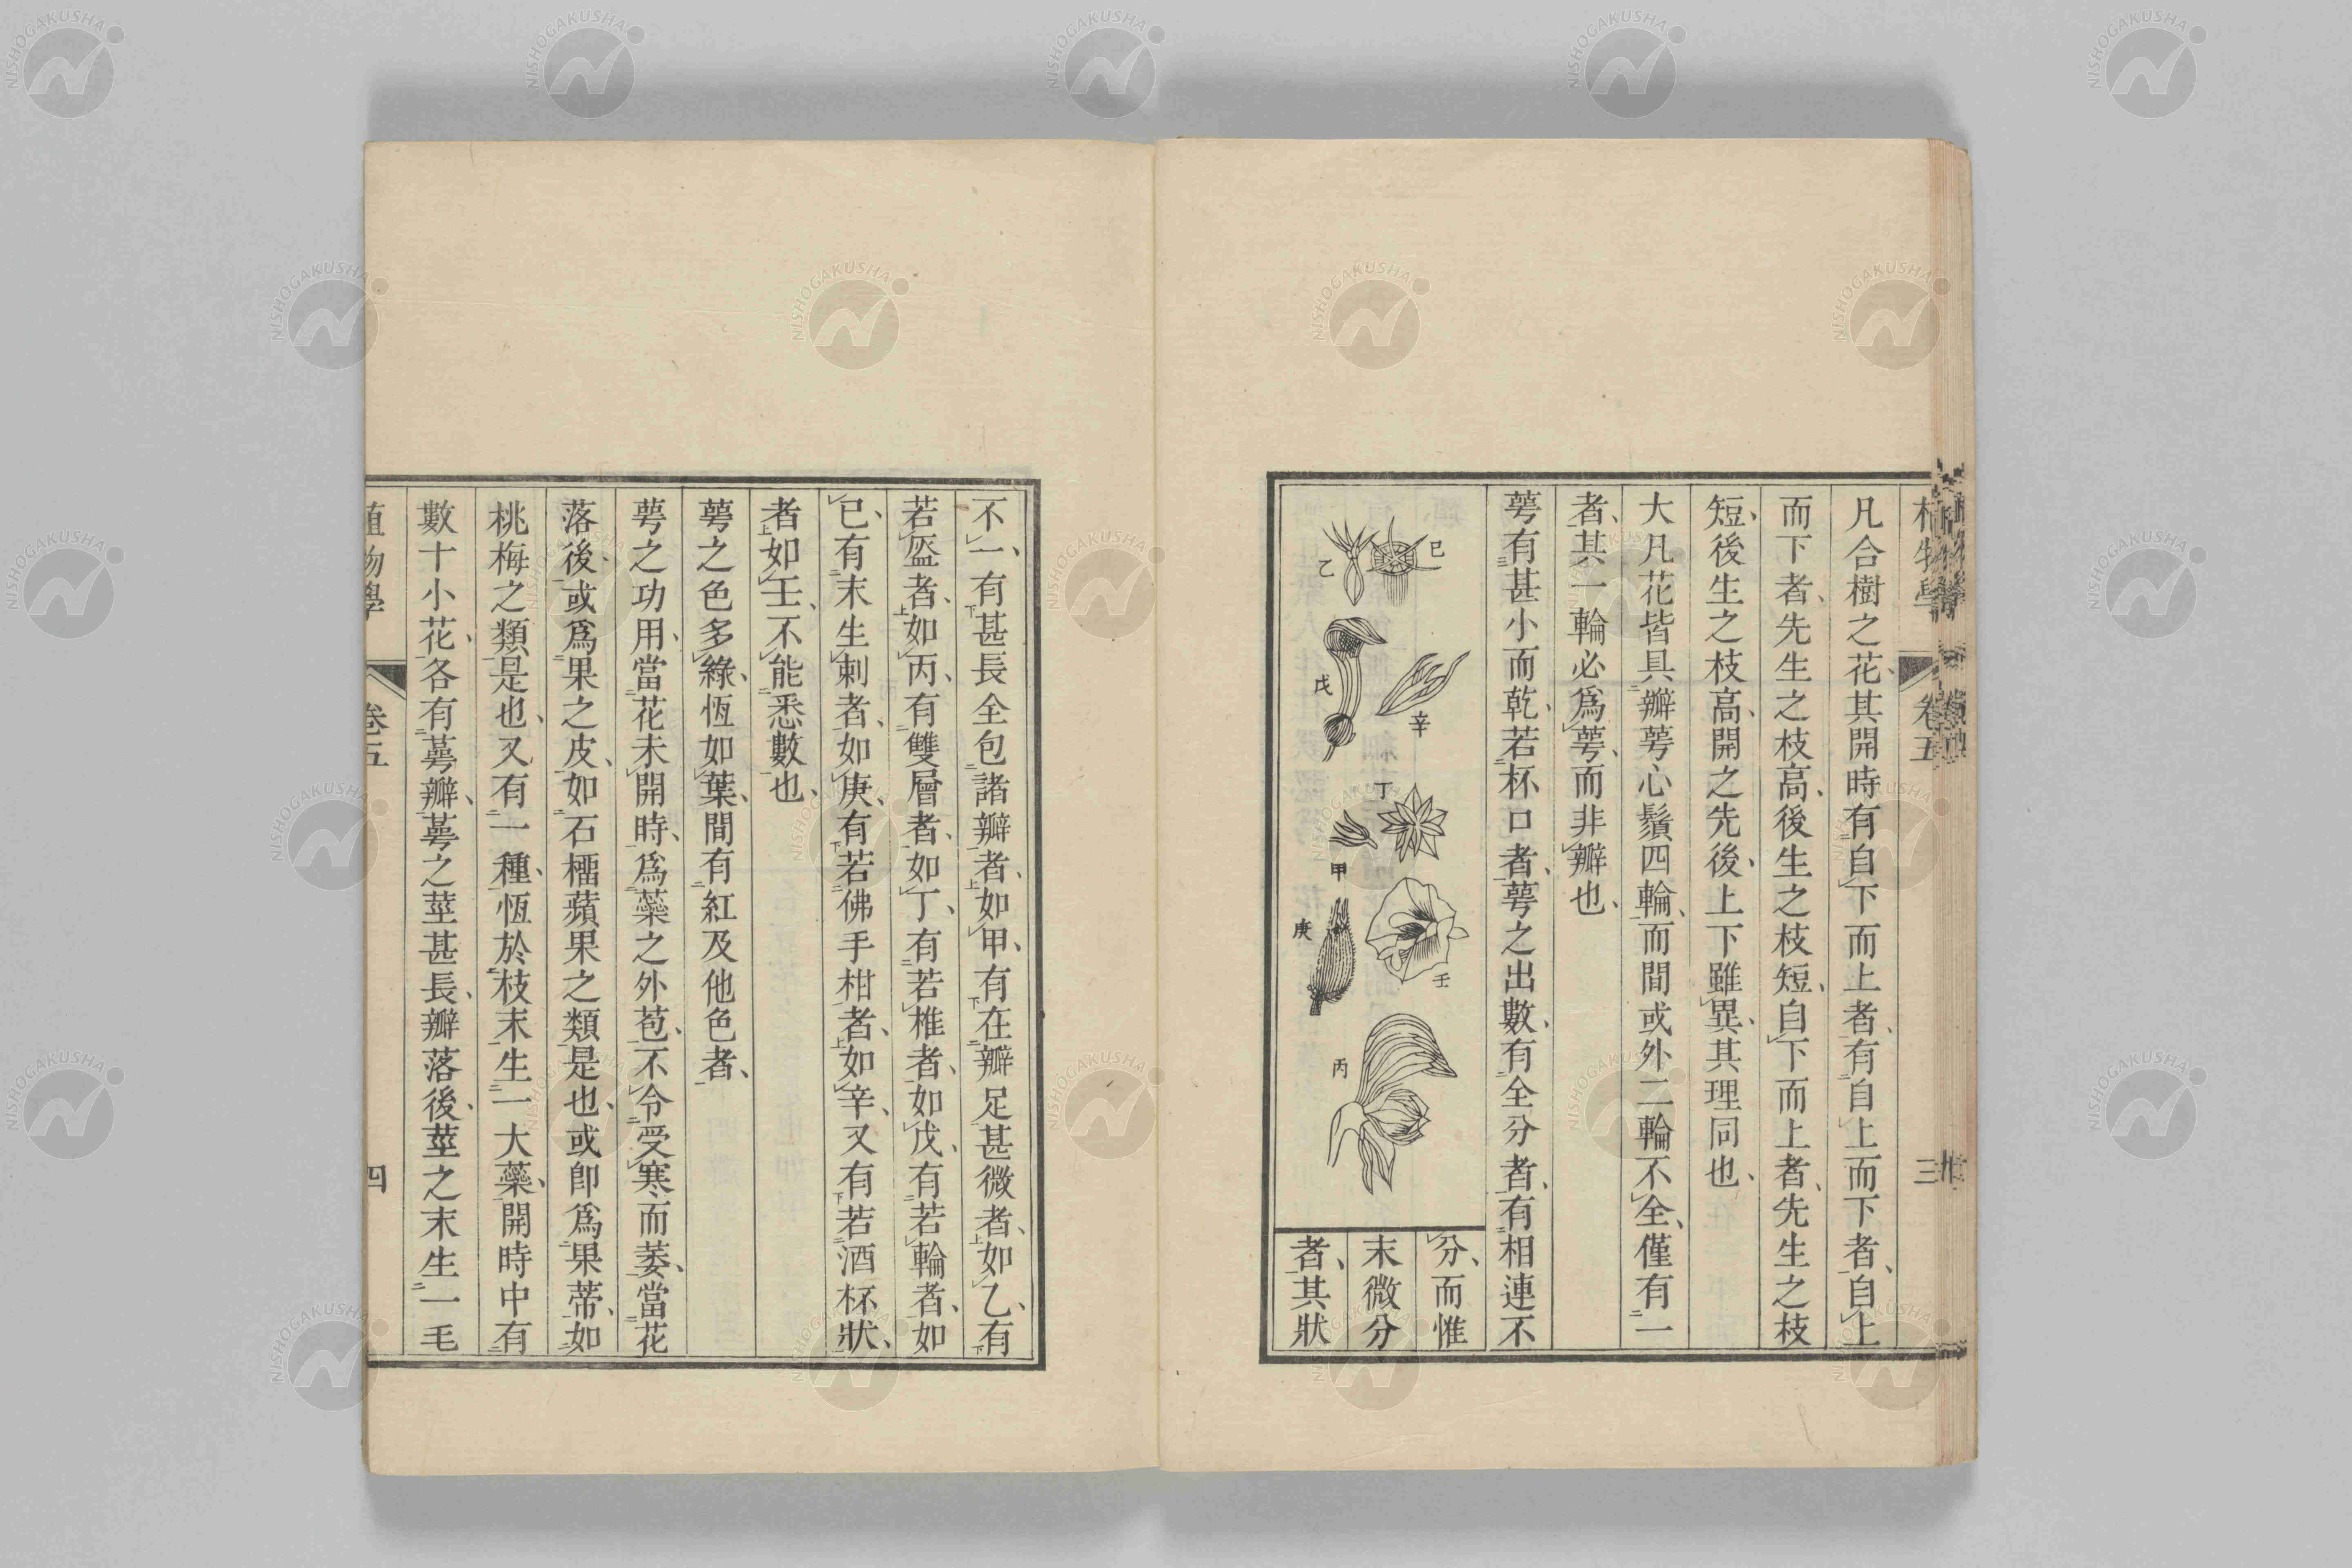 凡合樹之花、其開時有自下而上者、有自上而下者、自上
而下者、先生之枝高、後生之枝短、自下而上者、先生之枝
短、後生之枝高、開之先後、上下雖異、其理同也、
大凡花皆具瓣萼心鬚四輪、而間或外二輪不全、僅有一
者、其一輪必爲萼、而非瓣也、
萼有甚小而乾、若杯口者、萼之出數、有全分者、有相連不
分、而惟
末微分
者、其狀
己
乙
戊
辛
丁
甲
庚
壬
丙
卷五
三
不一、有甚長全包諸瓣者、如甲、有在瓣足甚微者、如乙、有
若盔者、如丙、有雙層者、如丁、有若椎者、如戊、有若輪者、如
已、有末生刺者、如庚、有若佛手柑者、如辛、又有若酒杯狀、
者如壬、不能悉數也、
萼之色多綠、恆如葉、間有紅及他色者、
萼之功用、當花未開時、爲蘂之外苞、不令受寒而萎、當花
落後、或爲果之皮、如石榴蘋果之類是也、或卽爲果蒂、如
桃梅之類是也、又有一種、恆於枝末生一大蘂、開時中有
數十小花、各有萼瓣、萼之莖甚長、瓣落後、莖之末生一毛
植物學
卷五
四
NISHOGAKUSHA